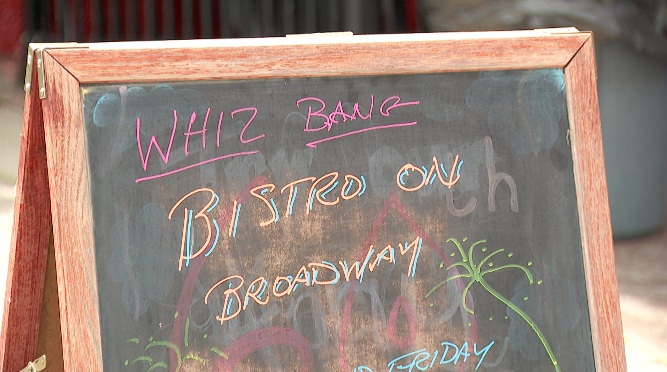 WHIZ BANG
BISTRO ON
BROADWAY
FRIDAY